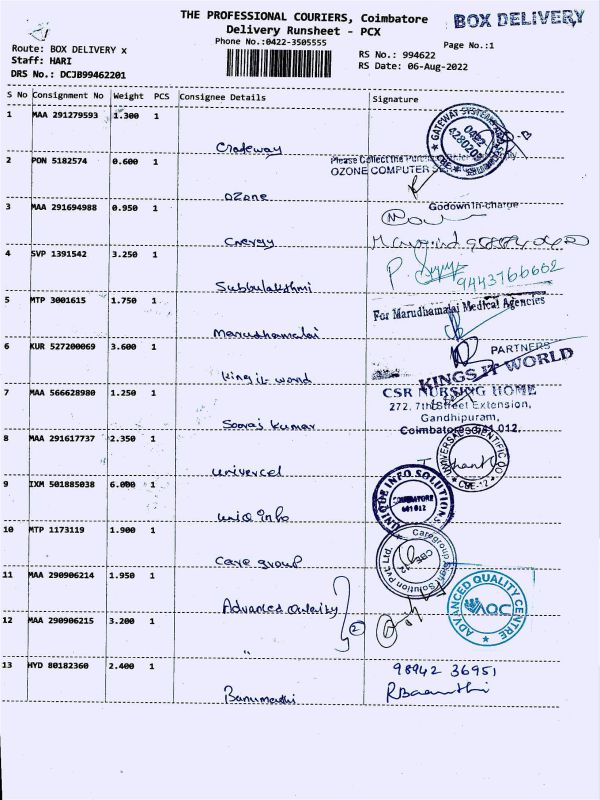 THE PROFESSIONAL COURIERS, Coimbatore
BOX DELIVERY
Delivery Runsheet - PCX
Phone No.:0422-3505555
Page No.:1
Route: BOX DELIVERY x
Staff: HARI
DRS No.: DCJB99462201
RS No.: 994622
RS Date: 06-Aug-2022
S No Consignment No Weight PCS Consignee Details Signature
1 MAA 291279593 1.300 1
0422
2 PON 5182574 0.600 1
OZONE COMPUTER
Ozone
3 MAA 291694988 0.950 1
Godown in-charge
Energy
4 SVP 1391542 3.250 1
9443766662
Subbulakshmi
5 MTP 3001615 1.750 1
For Marudhamalai Medical Agencies
Marudhamalai
PARTNERS
6 KUR 527200069 3.600 1
KINGS IT WORLD
King it world
7 MAA 566628980 1.250 1
CSR NURSING HOME
272, 7th Street Extension,
Gandhipuram,
Coimbatore 641 012.
Sooraj kumar
8 MAA 291617737 2.350 1
UNIVERSAL SCIENTIFIC CO.
CBE-12
univercel
9 IXM 501885038 6.000 1
UNIQUE INFO SOLUTIONS
COIMBATORE
641 012
uniq info
10 MTP 1173119 1.900 1
Caregroup
Solution Pvt Ltd.
CBE-12
Care group
11 MAA 290906214 1.950 1
ADVANCED QUALITY CENTRE
AQC
Advanced Quality
12 MAA 290906215 3.200 1
2
"
13 HYD 80182360 2.400 1
98942 36951
Banumathi